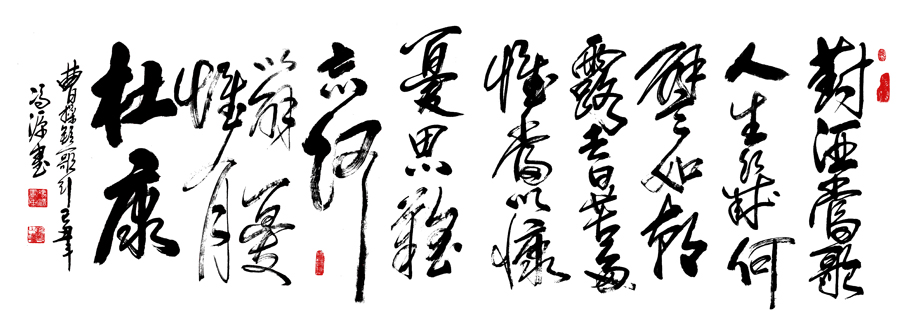 對酒當歌
人生幾何
譬如朝
露去日苦多
慨當以慷
憂思難
忘何
以解憂
惟有
杜康
曹操短歌行
書